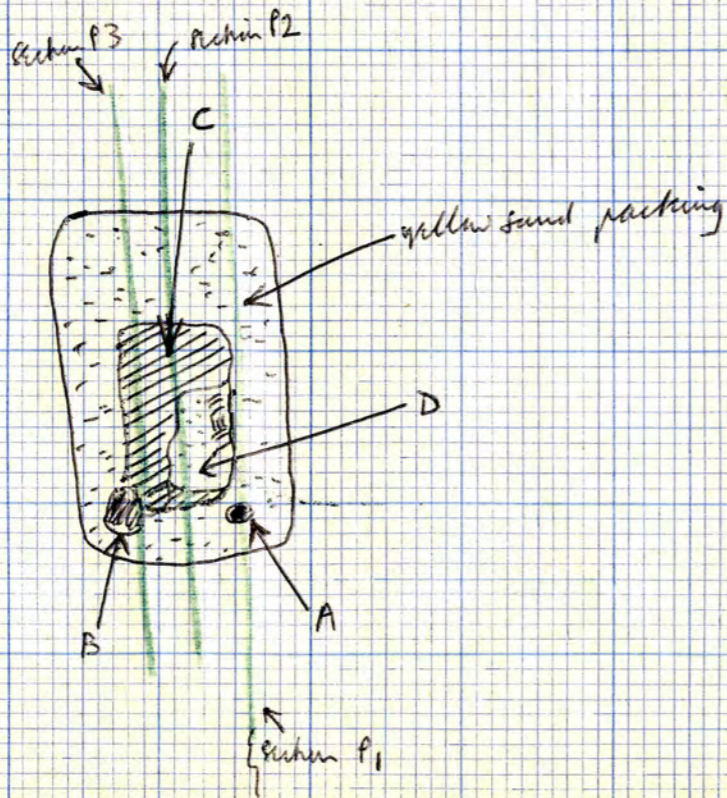 section P3
section P2
C
yellow sand packing
D
A
B
section P1